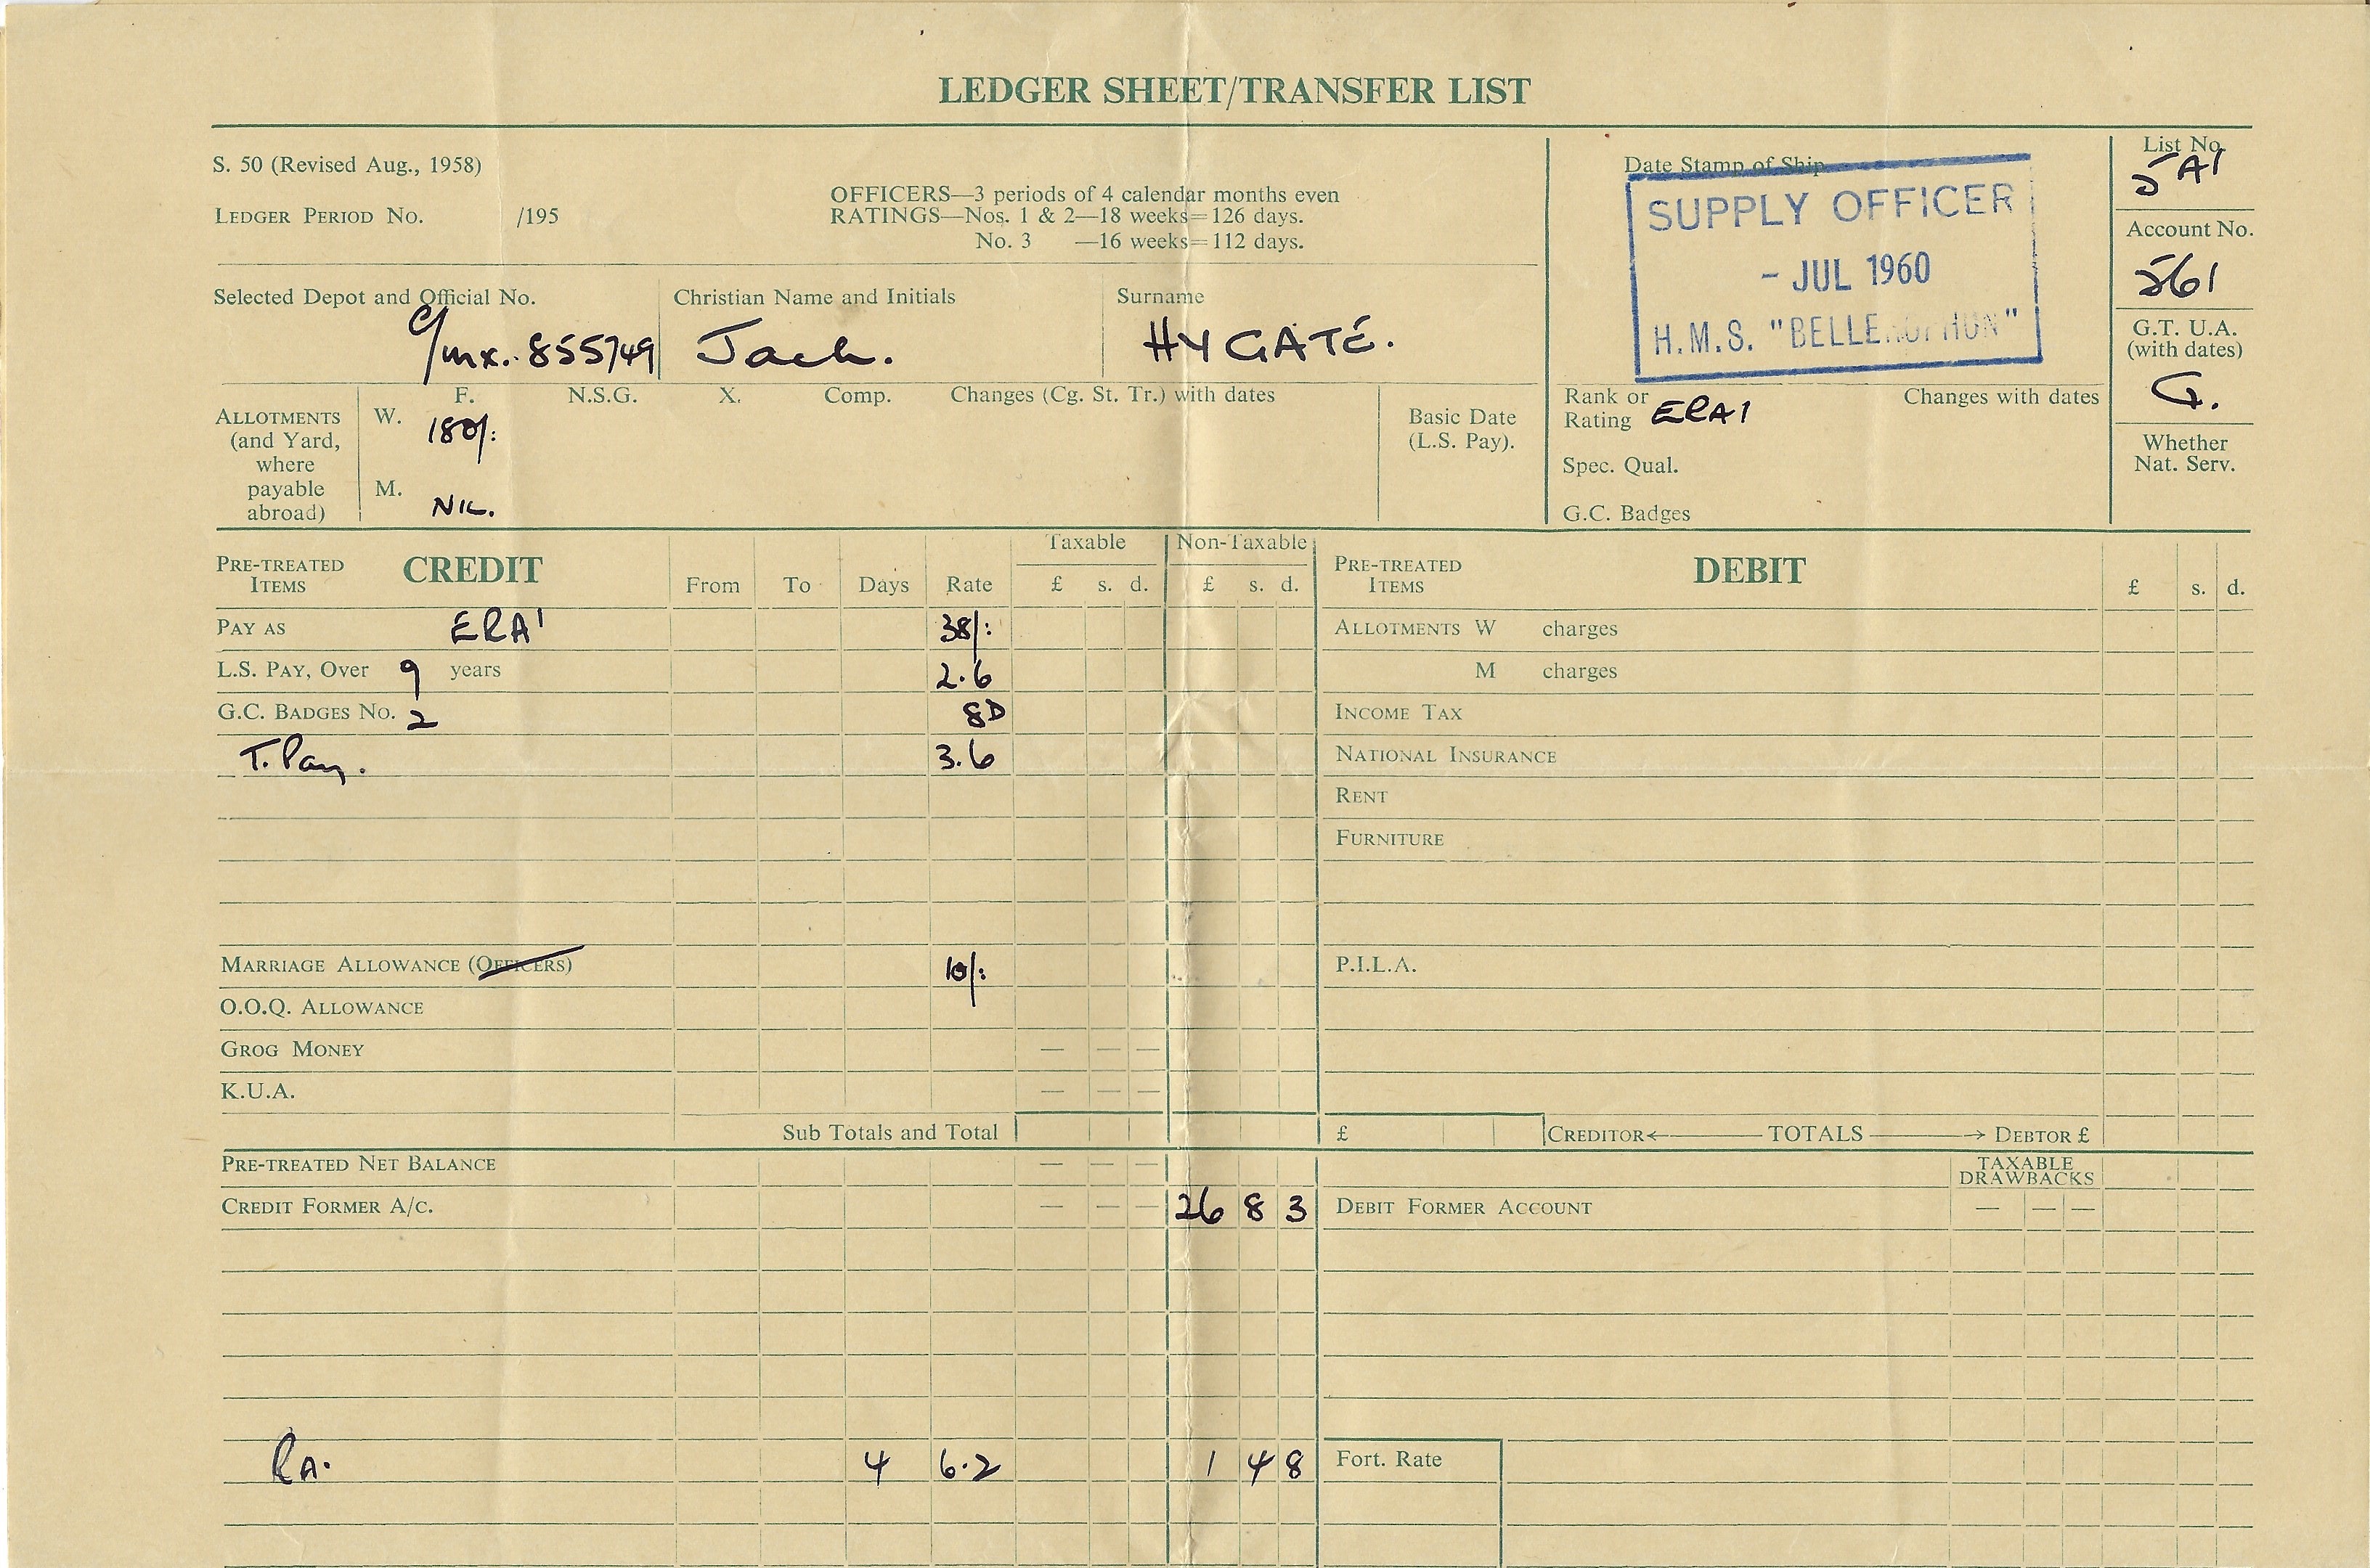 LEDGER SHEET/TRANSFER LIST
S. 50 (Revised Aug., 1958)
LEDGER PERIOD NO. /195
OFFICERS—3 periods of 4 calendar months even
RATINGS—Nos. 1 & 2—18 weeks=126 days.
No. 3 —16 weeks=112 days.
Date Stamp of Ship
SUPPLY OFFICER
- JUL 1960
H.M.S. "BELLEROPHON"
List No.
5A1
Account No.
561
G.T. U.A.
(with dates)
G.
Whether
Nat. Serv.
Selected Depot and Official No.
C/MX. 855749
Christian Name and Initials
Jack.
Surname
HYGATE.
ALLOTMENTS
(and Yard,
where
payable
abroad)
F. N.S.G. X. Comp. Changes (Cg. St. Tr.) with dates
W. 180/:
M. NIL.
Basic Date
(L.S. Pay).
Rank or
Rating ERA1
Changes with dates
Spec. Qual.
G.C. Badges
PRE-TREATED
ITEMS
CREDIT
From To Days Rate
Taxable
£ s. d.
Non-Taxable
£ s. d.
PRE-TREATED
ITEMS
DEBIT
£ s. d.
PAY AS ERA1 38/:
ALLOTMENTS W charges
L.S. PAY, Over 9 years 2.6
M charges
G.C. BADGES No. 2 8D
INCOME TAX
T. Pay. 3.6
NATIONAL INSURANCE
RENT
FURNITURE
MARRIAGE ALLOWANCE (OFFICERS) 10/:
P.I.L.A.
O.O.Q. ALLOWANCE
GROG MONEY — — —
K.U.A. — — —
Sub Totals and Total
£ CREDITOR ← TOTALS → DEBTOR £
PRE-TREATED NET BALANCE — — —
TAXABLE
DRAWBACKS
CREDIT FORMER A/C. — — — 26 8 3
DEBIT FORMER ACCOUNT — — —
RA. 4 6.2 1 4 8
Fort. Rate